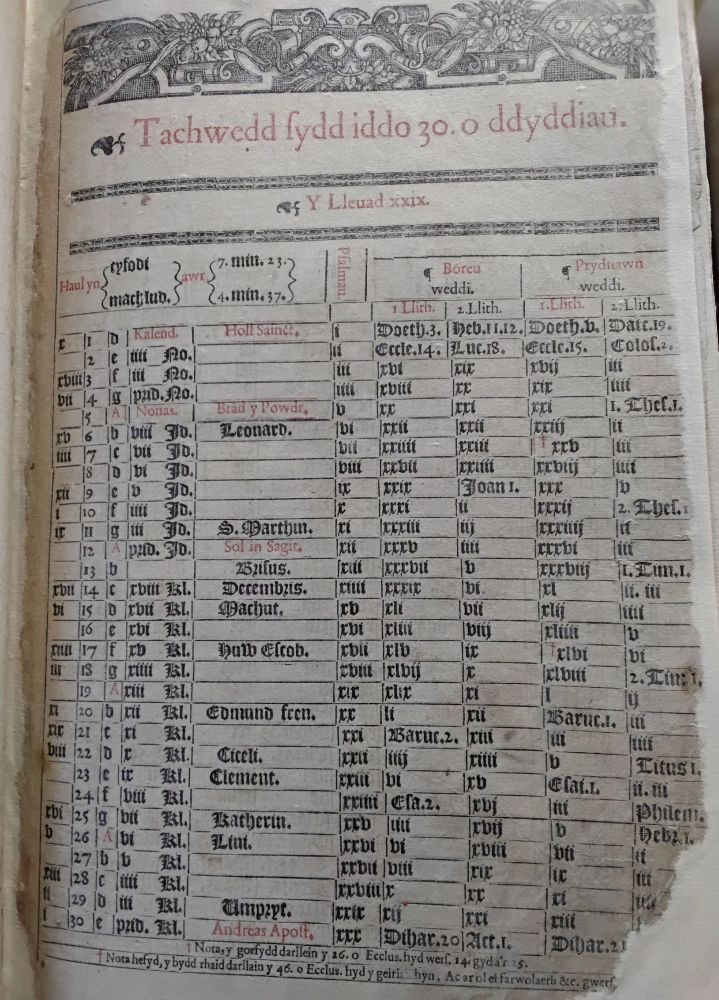 Tachwedd sydd iddo 30. o ddyddiau.
Y Lleuad xxix.
Haul yn cyfodi machlud. awr 7. min. 23. 4. min. 37. Psalmau. ¶ Boreu weddi. ¶ Prydnawn weddi.
1 Llith. 2. Llith. 1. Llith. 2. Llith.
x 1 d Kalend. Holl Sainct. i Doeth.3. Heb.11,12. Doeth.v. Datc.19.
2 e iiii No. ii Eccle.14. Luc.18. Eccle.15. Colos.2.
xviii 3 f iii No. iii xvi xix xvij iii
vii 4 g prid. No. iiii xviii xx xix iiii
5 A Nonas. Brad y Powdr. v xx xxi xxi 1. Thes.1.
xv 6 b viii Jd. Leonard. vi xxii xxii xxiij ii
iiii 7 c vii Jd. vii xxiiii xxiii † xxv iii
8 d vi Jd. viii xxvii xxiiii xxviij iiii
xii 9 e v Jd. ix xxix Joan 1. xxx v
i 10 f iiii Jd. x xxxi ii xxxij 2. Thes.1
ix 11 g iii Jd. S. Marthin. xi xxxiii iij xxxiiij ii
12 A prid. Jd. Sol in Sagit. xii xxxv iiii xxxvi iii
13 b Brisus. xiii xxxvii v xxxviij 1. Tim.1.
xvii 14 c xviii Kl. Decembris. xiiii xxxix vi xl ii. iii
vi 15 d xvii Kl. Machut. xv xli vii xlij iiii
16 e xvi Kl. xvi xliii viij xliiii v
xiiii 17 f xv Kl. Huw Escob. xvii xlv ix † xlvi vi
iii 18 g xiiii Kl. xviii xlvij x xlviii 2. Tim.1.
19 A xiii Kl. xix xlix xi l ij
xi 20 b xii Kl. Edmund fren. xx li xii Baruc.1. iii
xix 21 c xi Kl. xxi Baruc.2. xiii iii iiii
viii 22 d x Kl. Cicili. xxii iiij xiiii v Titus 1.
23 e ix Kl. Clement. xxiii vi xv Esai.1. ii. iii
24 f viii Kl. xxiiii Esa.2. xvj iii Philem.
xvi 25 g vii Kl. Katherin. xxv iiii xvij v Hebr.1
v 26 A vi Kl. Lini. xxvi vi xviii vii ii
27 b v Kl. xxvii viii xix ix iii
xiii 28 c iiii Kl. xxviii x xx xi iiii
ii 29 d iii Kl. Umpryt. xxix xij xxi xiii
i 30 e prid. Kl. Andreas Apost. xxx Dihar.20 Act.1. Dihar.21
† Nota, y gorfydd darllein y 26. o Ecclus. hyd wers. 14. gyd a'r 25.
† Nota hefyd, y bydd rhaid darllain y 46. o Ecclus. hyd y geiriau hyn, Ac ar ol ei farwolaeth &c. gwers.